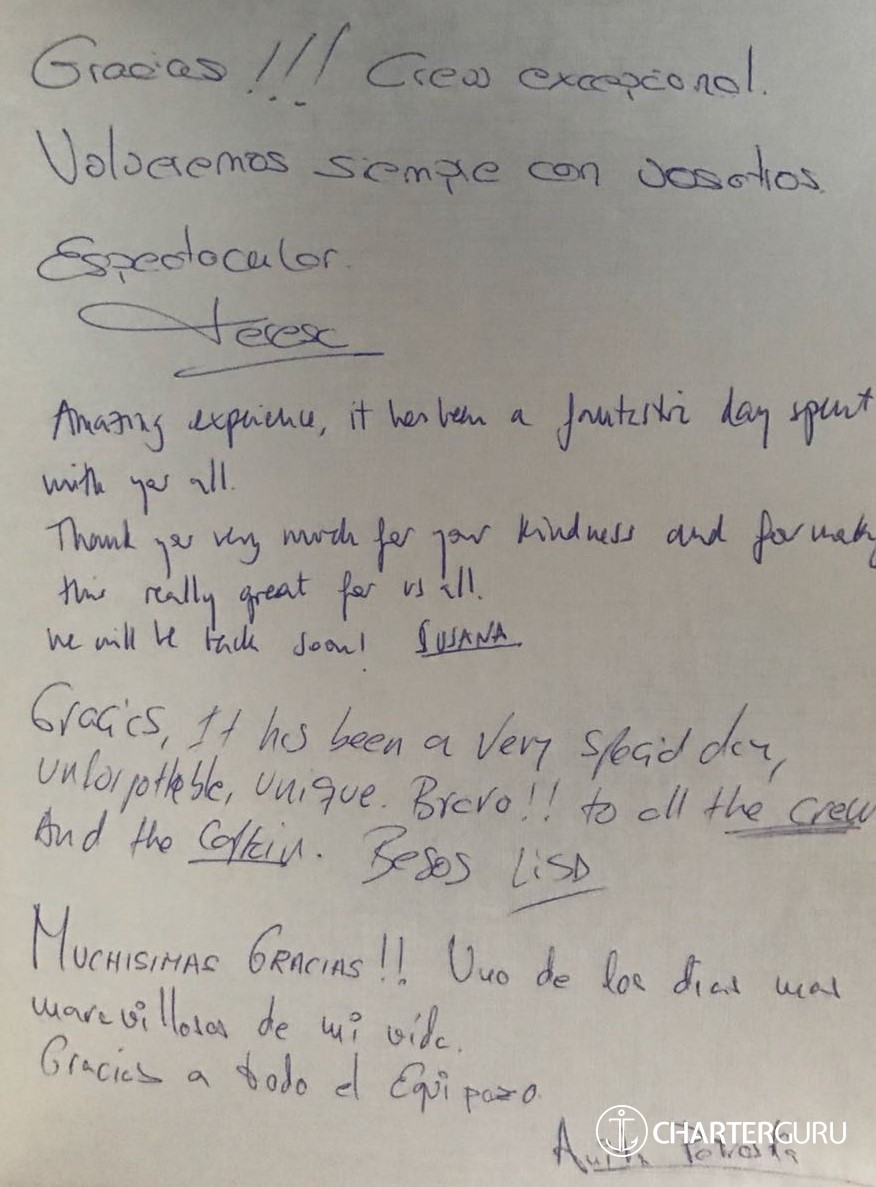 Gracias!!! Crew excepcional.
Volveremos siempre con vosotros.
Espectacular.
Amazing experience, it has been a fantastic day spent
with you all.
Thank you very much for your kindness and for making
this really great for us all.
We will be back soon! SUSANA
Gracias, It has been a very special day,
unforgottable, unique. Bravo!! to all the crew
And the Captain. Besos LISA
MUCHISIMAS GRACIAS!! Uno de los dias mas
maravillosos de mi vida.
Gracias a todo el Equipazo.
CHARTERGURU